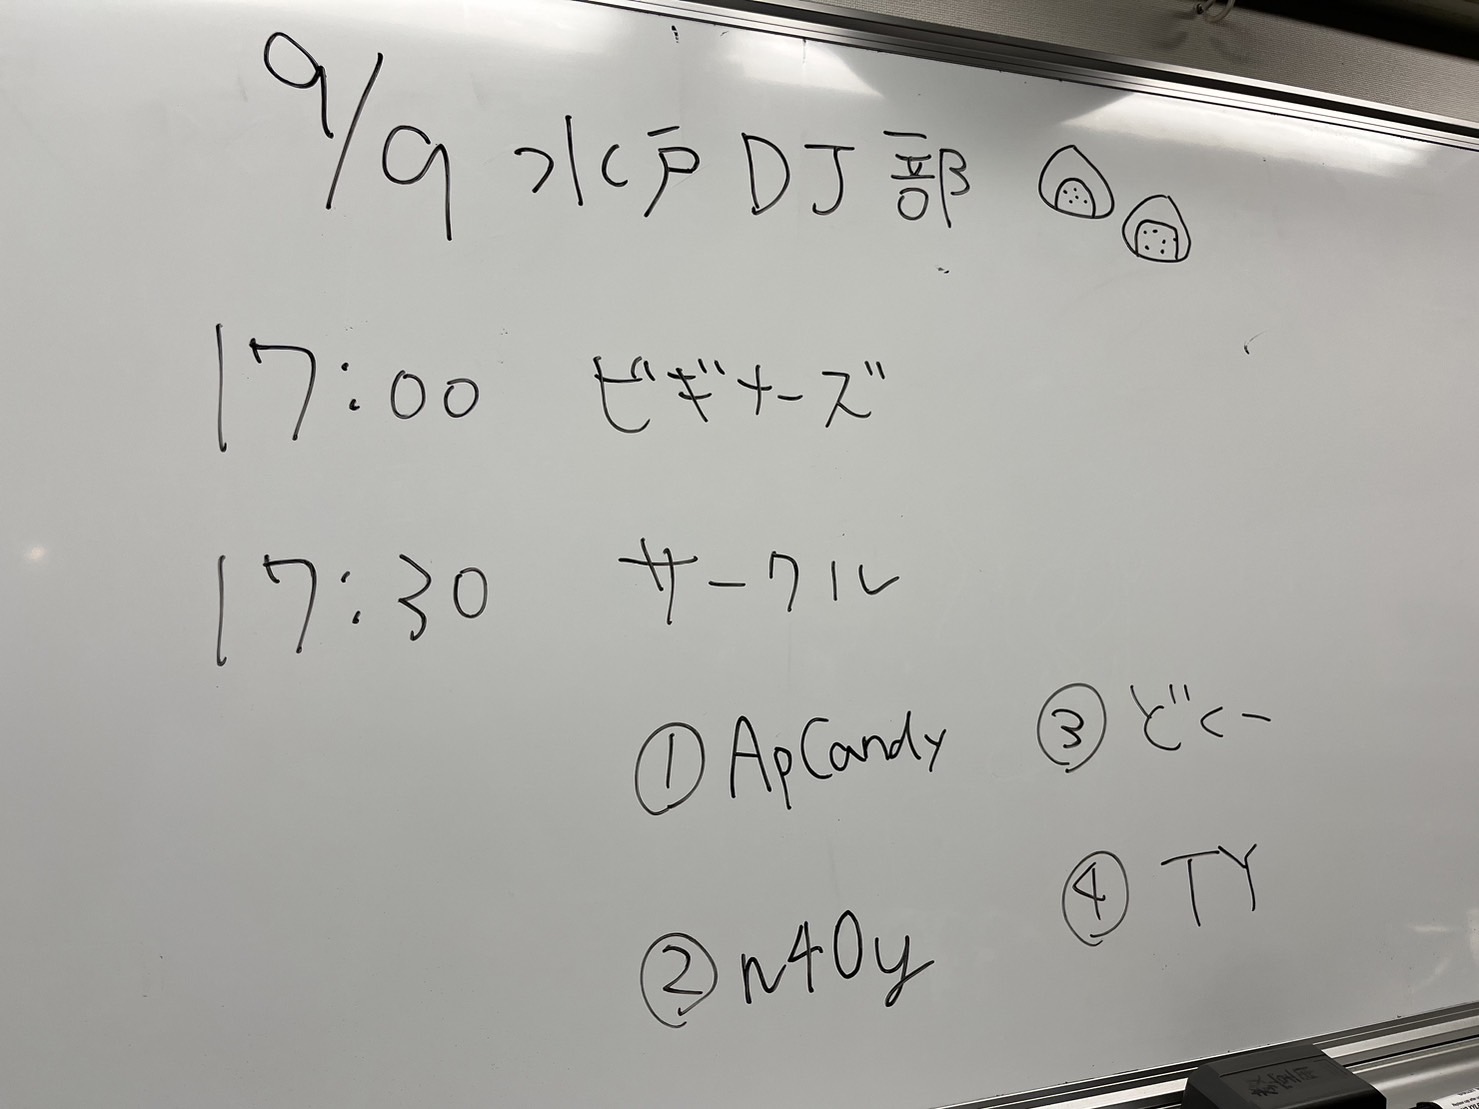 9/9 水戸DJ部
17:00 ビギナーズ
17:30 サークル
① ApCandy
② n40y
③ どくー
④ TY